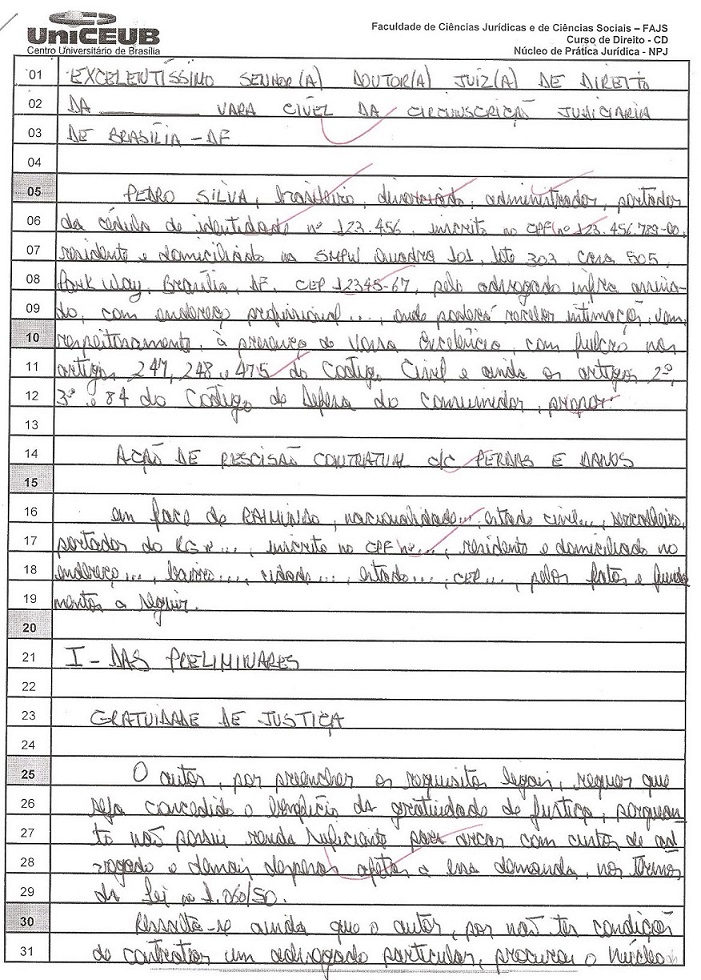 UniCEUB
Centro Universitário de Brasília
Faculdade de Ciências Jurídicas e de Ciências Sociais – FAJS
Curso de Direito - CD
Núcleo de Prática Jurídica - NPJ
01 EXCELENTÍSSIMO SENHOR(A) DOUTOR(A) JUIZ(A) DE DIREITO
02 DA ________ VARA CÍVEL DA CIRCUNSCRIÇÃO JUDICIÁRIA
03 DE BRASÍLIA - DF
04
05 PEDRO SILVA, brasileiro, divorciado, administrador, portador
06 da cédula de identidade nº 123.456, inscrito no CPF nº 123.456.789-00,
07 residente e domiciliado na SMPW Quadra 101, lote 303, casa 505,
08 Park Way, Brasília, DF, CEP 12345-67, pelo advogado infra assina-
09 do, com endereço profissional ..., onde poderá receber intimação, vem,
10 respeitosamente, à presença de Vossa Excelência, com fulcro nos
11 artigos 247, 248 e 475 do Código Civil e ainda os artigos 2º,
12 3º e 84 do Código de Defesa do Consumidor, propor:
13
14 AÇÃO DE RESCISÃO CONTRATUAL C/C PERDAS E DANOS
15
16 em face de RAIMUNDO, nacionalidade..., estado civil..., marceneiro,
17 portador do RG nº..., inscrito no CPF nº..., residente e domiciliado no
18 endereço..., bairro..., cidade..., estado..., CEP..., pelos fatos e funda
19 mentos a seguir.
20
21 I - DAS PRELIMINARES
22
23 GRATUIDADE DE JUSTIÇA
24
25 O autor, por preencher os requisitos legais, requer que
26 seja concedido o benefício da gratuidade de justiça, porquan-
27 to não possui renda suficiente para arcar com custos de ad
28 vogado e demais despesas afetas a essa demanda, nos termos
29 da lei nº 1.060/50.
30 Ressalta-se ainda que o autor, por não ter condição
31 de contratar um advogado particular, procurou o Núcleo